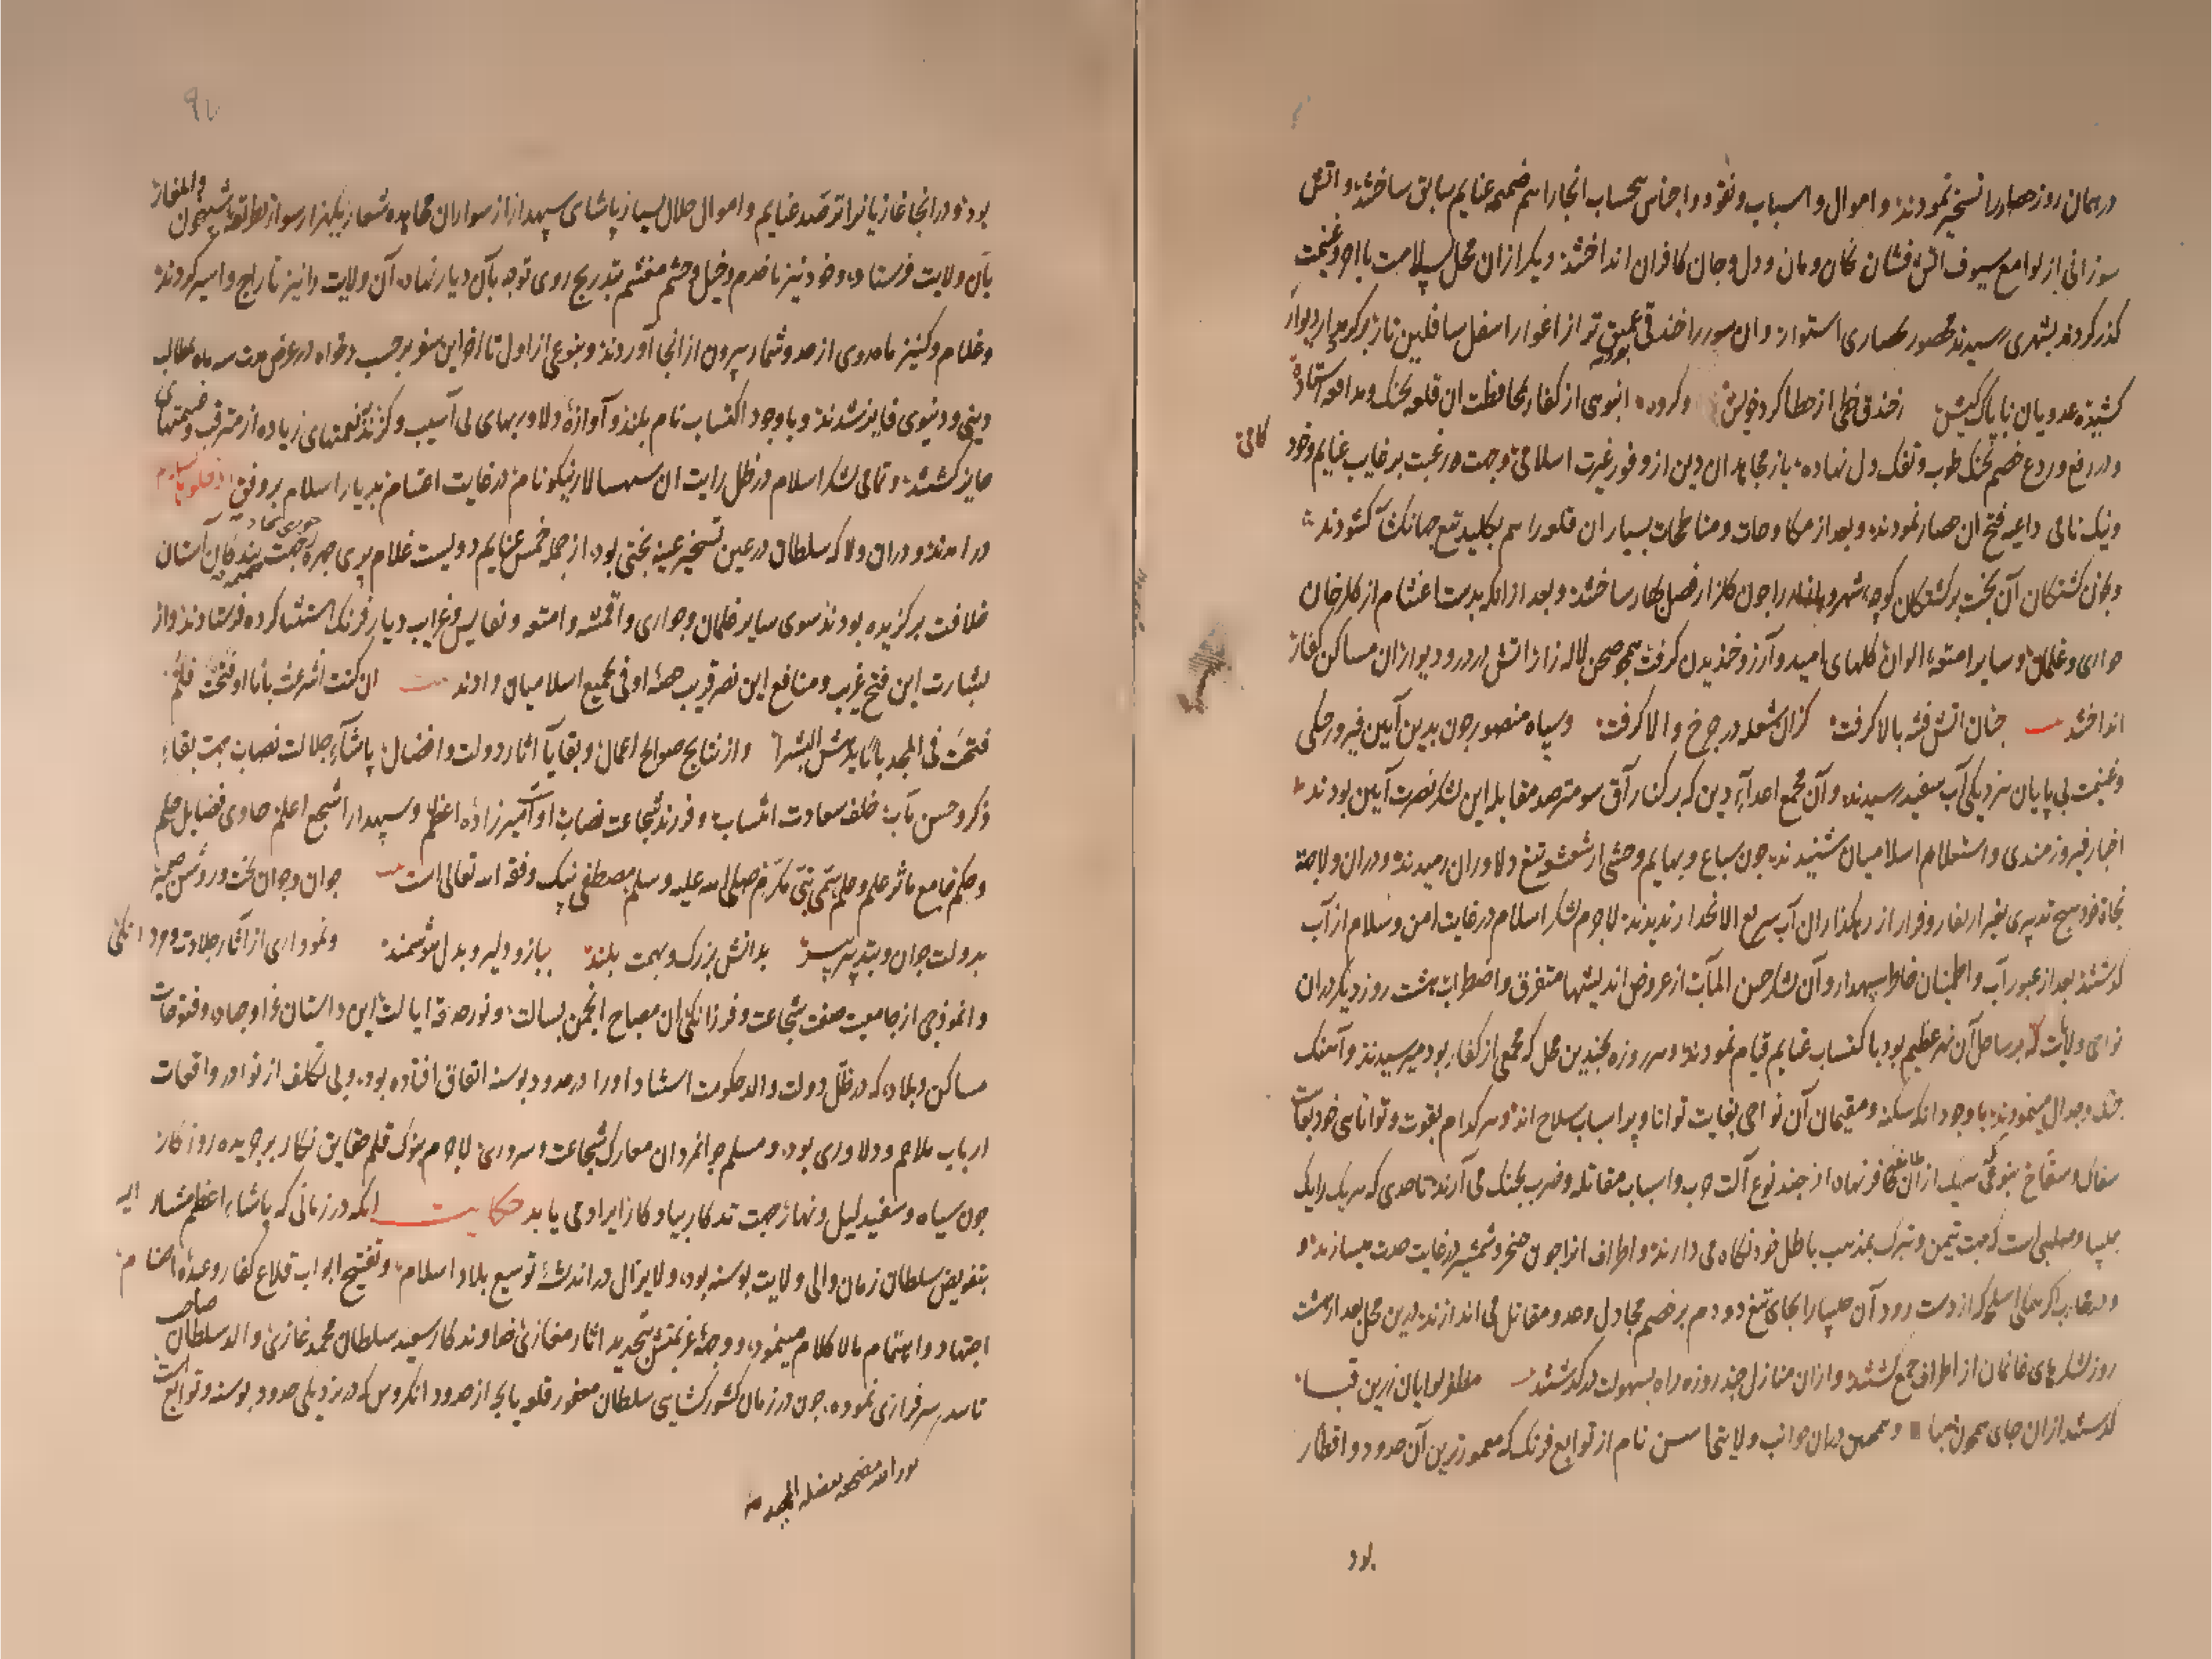 در همان روز حصار را تسخیر نمودند و اموال و اسباب و نقود و اجناس بیحساب آنجا را هم ضمیمه غنایم سابق ساختند و آتش
سوزانی از لوامع سیوف آتش فشان بخان و مان و دل و جان کافران انداختند و یکر از ان محل بسلامت با اجر و غنیمت
گذر کردند بشهری رسیدند محصور بحصاری استوار و ان سور را خندقی عمیق تر از اغوار اسفل سافلین
کشیده عدویان ناپاک کیش ز خندق خطی از خطا کرد خویش و گروه انبوهی از کفار بمحافظت ان قلعه بجنگ و مدافعه استاده
و در رفع و ردع خصم بجنگ طوب و تفنگ دل نهاده باز مجاهدان دین از وفور غیرت اسلامی و جهت و رغبت بر غایب غنایم و خود کامی
و نیک نامی داعیه فتح ان حصار نمودند و بعد از مکاوحات و مناطحات بسیار ان قلعه را هم بکلید تیغ جهانگشا گشودند
و بخون کشتگان آن بخت برگشتگان کوچه شهر و را چون گلزار فصل بهار ساختند و بعد از انکه بدست اغتنام از گلرخان
جواری و غلمان و سایر امتعه الوان گلهای امید و آرزو خندیدن گرفت همچو صحن لاله زار آتش در در و دیوار ان مساکن کفار
انداختند چنان آتش فتنه بالا گرفت کزان شعله در چرخ والا گرفت و سپاه منصور چون بدین آیین فیروزجنگی
و غنیمت بی پایان بنزدیکی آب سفید رسیدند و آن مجمع اعداء دین که بر کنار آق سو مترصد مقابله این لشکر نصرت آیین بودند
اخبار فیروزمندی و استعلام اسلامیان شنیدند چون سباع و بهایم وحشی از شعشعه تیغ دلاوران رمیدند و در ان ولا جهة
نجاة خود هیچ تدبیری بغیر از نفار و فرار از رهگذار ان آب سریع الانحدار ندیدند لاجرم لشکر اسلام در غایت امن و سلام از آب
گذشتند بعد از عبور آب و اطمینان خاطر سپهدار و آن لشکر حسن المآب از عروض اندیشها متفرق و اضطراب هشت روز دیگر در ان
نواحی ولایات که بر ساحل آن نهر عظیم بود باکتساب غنایم قیام نمودند و هر روزه بچندین محل که مجمعی از کفار بود میرسیدند و آهنگ
جنگ و جدال مینمودند با وجود انکه سکنه و مقیمان آن نواحی بغایت توانا و پر اسباب سلاح اند و هر کدام بقوت و توانایی خود بغایت
سفاک و سفاح بنوعی که هر یک از ان طایفه کافر نهاد از چند نوع آلت حرب و اسباب مقاتله و ضرب بجنگ می آرند تا حدی که هر یک را یک
چلیپا و صلیبی است که جهت تیمن و تبرک بمذهب باطل خود نگاه می دارند و اطراف انرا چون خنجر و شمشیر در غایت حدت میسازند و
اگر همگی اسلحه از دست رود آن چلیپا را بجای تیغ دو دم بر خصم مجادل و عدو مقاتل می اندازند درین محل بعد از هشت
روز لشکرهای غانمان از اطراف جمع گشتند و از ان منازل چند روزه راه بسهولت در گذشتند مظفر لوایان زرین قبا
گذشتند از ان جای همچون صبا و همچنین در ان جوانب ولایتی نام از توابع فرنگ که معمورترین آن حدود و اقطار
بود
بود و در انجا غازیانرا ترصد غنایم و اموال حلال بسیار پاشای سپهدار از سواران مجاهده شعار یکهزار سوار بطریقه شبیخون والمغار
بآن ولایت فرستاد و خود نیز با خدم و خیل و حشم مغتنم بتدریج روی توجه بآن دیار نهاد آن ولایت را نیز تاراج و اسیر کردند
و غلام و کنیز ماهروی از حد و شمار بیرون از انجا آوردند و بنوعی از اول تا آخر این سفر بر حسب دلخواه در عرض مدت سه ماه بمطالب
دینی و دنیوی فایز شدند و با وجود اکتساب نام بلند و آوازهٔ دلاوریهای بی آسیب و گزند غنیمتهای زیاده از مترقب
حایز گشتند و تمامی لشکر اسلام در ظل رایت ان سپهسالار نیکو نام در غایت احتشام بدیار اسلام
در امدند و در ان ولا که سلطان در عین تسخیر عینه بختی بود از جمله خمس غنایم دویست غلام پری چهره جهت بندگان آستان
خلافت برگزیده بودند سوی سایر غلمان و جواری و اقمشه و امتعه و نفایس و غرایب دیار فرنگ استثنا کرده فرستادند و از
بشارت این فتح غریب و منافع این نصر قریب حصّه اوفی بجمیع اسلامیان دادند
فتحت فی المجد بابا و از نتایج صوالح اعمال و بقایا آثار دولت و افضال پاشاء جلالت نصاب جهت بقاء
ذکر و حسن مآب خلف سعادت انتساب و فرزند شجاعت نصاب او امیرزاده اعظم و سپهدار اشجع اعلم حاوی فضایل حلم
و حکم جامع مآثر علم و حلم سمی نبی مکرم صلی الله علیه و سلم مصطفی بیک وفقه الله تعالی است جوان و جوان بخت و روشن ضمیر
بدولت جوان و بتدبیر پیر بدانش بزرگ و بهمت بلند ببازو دلیر و بدل هوشمند و نموداری از آثار جلادت و مردانگی
و انموذجی از جامعیت صفت شجاعت و فرزانگی ان مصباح انجمن بسالت و نور حدقه ایالت این داستان غزا و جهاد و فتوحات
مساکن و بلاد که در ظل دولت والد حکومت استناد او را در حدود بوسنه اتفاق افتاده بود و بی تکلف از نوادر واقعات
ارباب ملاحم و دلاوری بود و مسلم جوانمردان معارک شجاعت و سروری لاجرم بنوک قلم حقایق نگار بر جریده روزگار
چون سیاه و سفید لیل و نهار جهت تذکار بیادگار ایراد می یابد حکایت انکه در زمانی که پاشاء اعظم مشار الیه
بتفویض سلطان زمان والی ولایت بوسنه بود و لایزال در اندیشهٔ توسیع بلاد اسلام و تفتیح ابواب قلاع کفار و عبدهٔ اصنام
اجتهاد و اهتمام مالا کلام مینمود و وجههٔ عزیمتش بتجدید آثار مغازی خداوندکار سعید سلطان محمد غازی والد سلطان صاحب
تاسد سرفرازی نموده چون در زمان کشورگشایی سلطان مغفور قلعه یایجه از حدود انکروس که در نزدیکی حدود بوسنه و توابع است